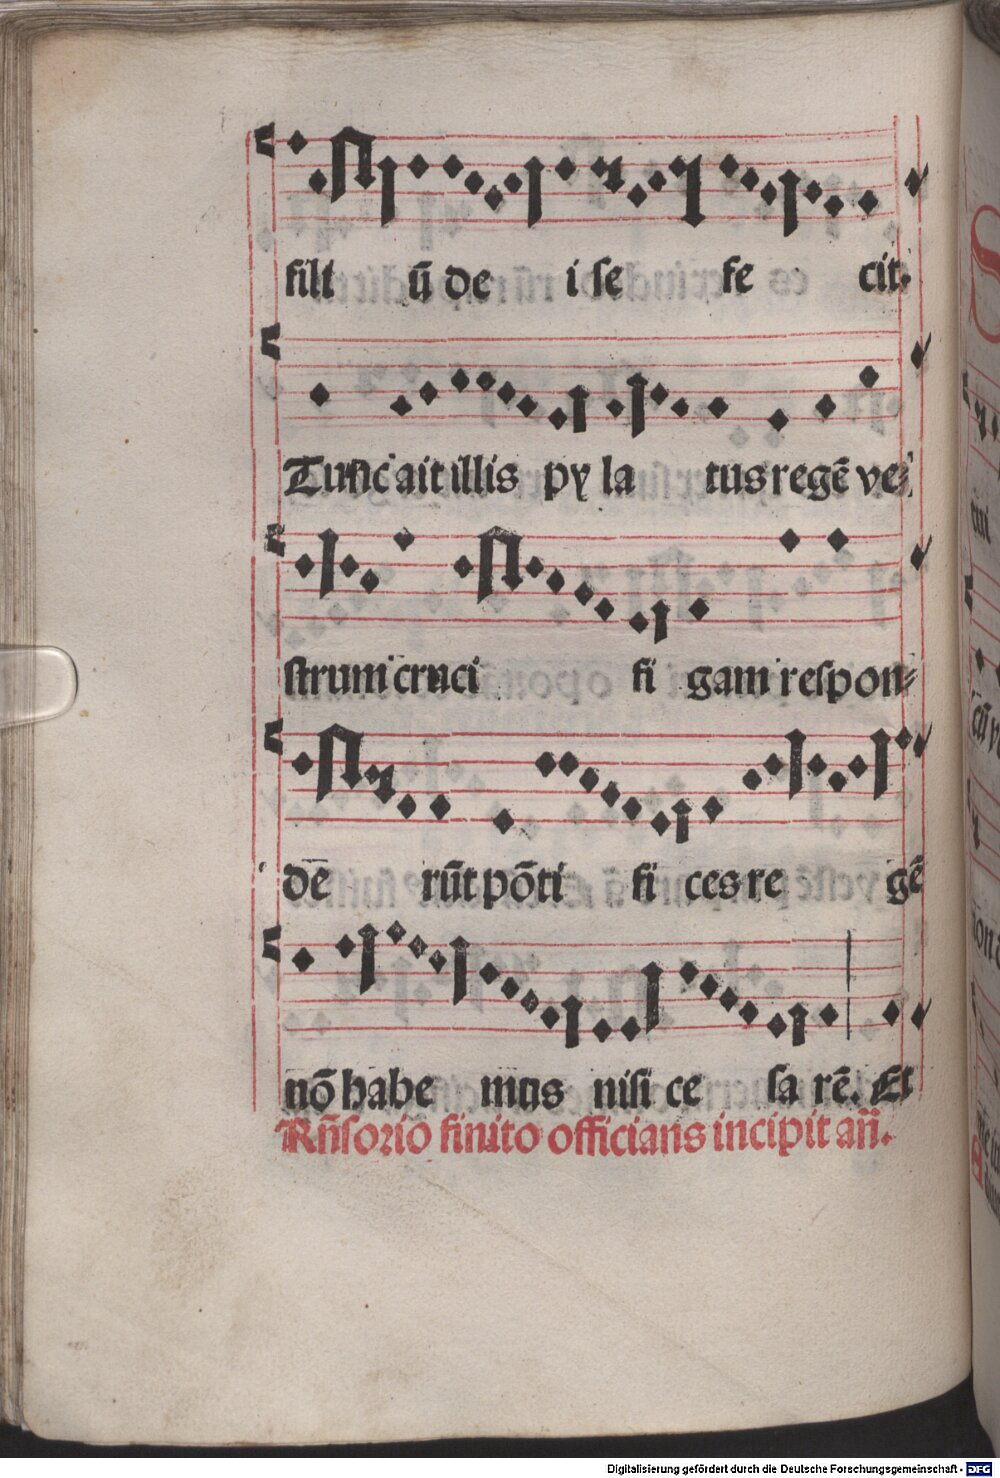 fili ū de i se fe cit.
Tunc ait illis py la tus regē ve-
strum cruci fi gam respon-
dē rūt pōti fi ces re gē
nō habe mus nisi ce sa rē. Et
Rn̄sorio finito officians incipit an̄.
Digitalisierung gefördert durch die Deutsche Forschungsgemeinschaft - DFG